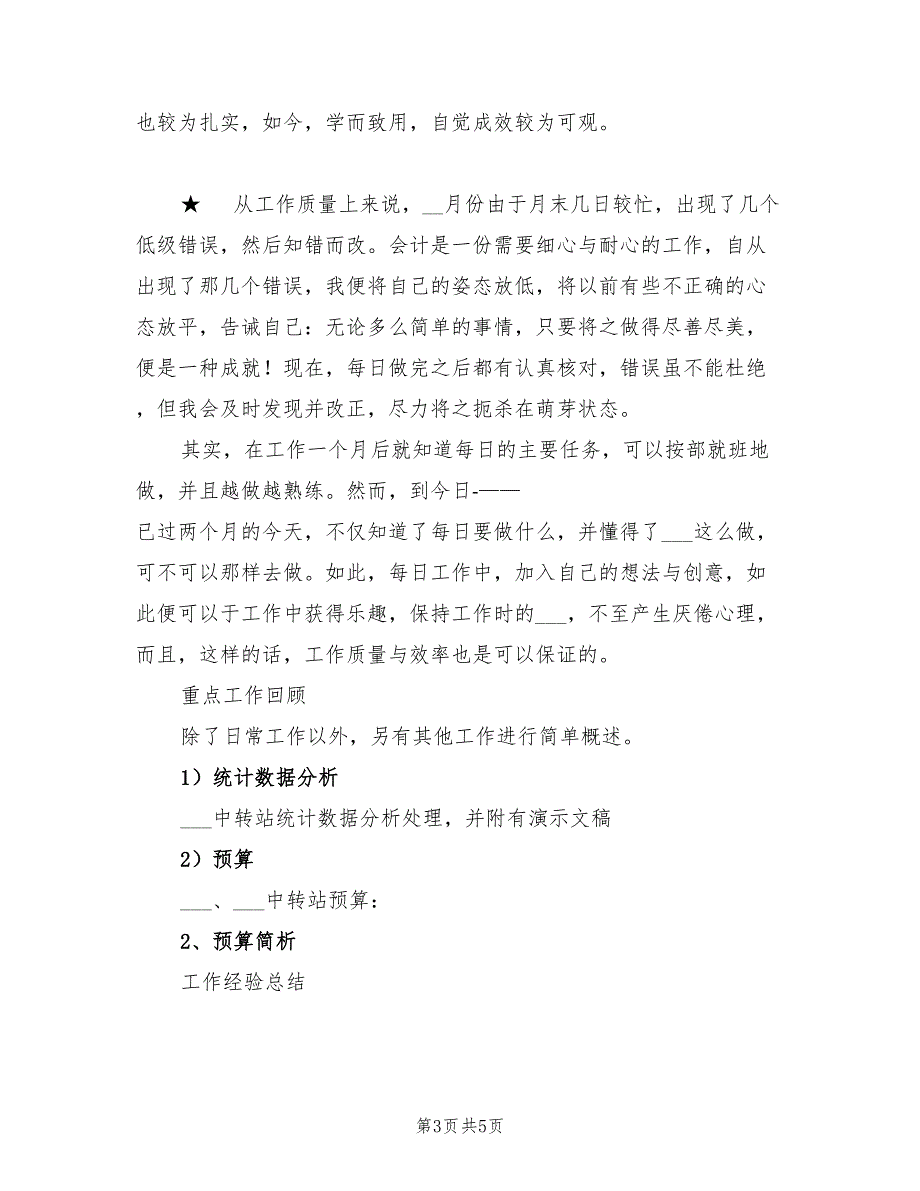 也较为扎实，如今，学而致用，自觉成效较为可观。
★ 从工作质量上来说，__月份由于月末几日较忙，出现了几个
低级错误，然后知错而改。会计是一份需要细心与耐心的工作，自从
出现了那几个错误，我便将自己的姿态放低，将以前有些不正确的心
态放平，告诫自己：无论多么简单的事情，只要将之做得尽善尽美，
便是一种成就！现在，每日做完之后都有认真核对，错误虽不能杜绝
，但我会及时发现并改正，尽力将之扼杀在萌芽状态。
其实，在工作一个月后就知道每日的主要任务，可以按部就班地
做，并且越做越熟练。然而，到今日-——
已过两个月的今天，不仅知道了每日要做什么，并懂得了___这么做，
可不可以那样去做。如此，每日工作中，加入自己的想法与创意，如
此便可以于工作中获得乐趣，保持工作时的___，不至产生厌倦心理，
而且，这样的话，工作质量与效率也是可以保证的。
重点工作回顾
除了日常工作以外，另有其他工作进行简单概述。
1）统计数据分析
___中转站统计数据分析处理，并附有演示文稿
2）预算
___、___中转站预算：
2、预算简析
工作经验总结
第3页共5页